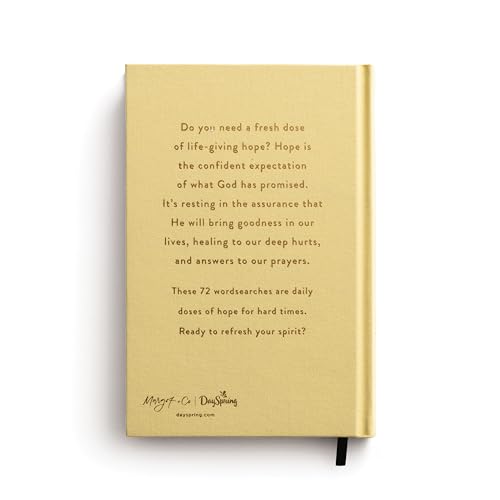 Do you need a fresh dose
of life-giving hope? Hope is
the confident expectation
of what God has promised.
It's resting in the assurance that
He will bring goodness in our
lives, healing to our deep hurts,
and answers to our prayers.
These 72 wordsearches are daily
doses of hope for hard times.
Ready to refresh your spirit?
& Co | DaySpring
dayspring.com